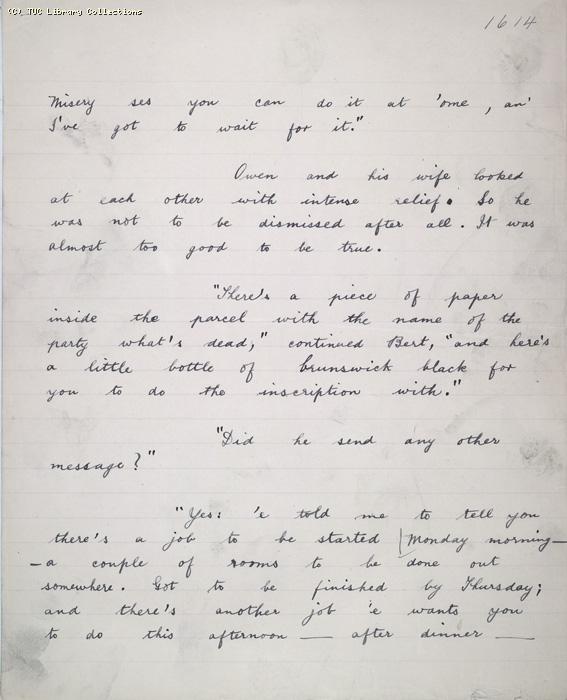 (C) TUC Library Collections
1614
Misery ses you can do it at 'ome, an'
I've got to wait for it."
Owen and his wife looked
at each other with intense relief. So he
was not to be dismissed after all. It was
almost too good to be true.
"There's a piece of paper
inside the parcel with the name of the
party what's dead," continued Bert, "and here's
a little bottle of Brunswick black for
you to do the inscription with."
"Did he send any other
message?"
"Yes: 'e told me to tell you
there's a job to be started Monday morning—
—a couple of rooms to be done out
somewhere. Got to be finished by Thursday;
and there's another job 'e wants you
to do this afternoon — after dinner —